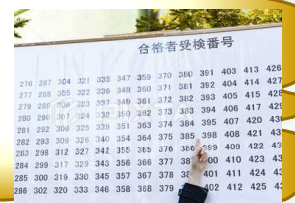 合格者受検番号
276 287 304 321 335 347 359 370 380 391 403 413 426
277 288 305 322 336 348 360 371 381 392 404 414 427
279 289 306 323 337 349 361 372 382 393 405 415 428
280 290 307 324 338 350 362 373 383 394 406 417 429
281 292 308 325 339 351 363 374 384 395 407 420
282 293 309 326 340 354 364 375 385 398 408 421
283 298 312 327 342 355 365 376 399 409 422
284 299 317 329 343 356 366 377 410 423
285 300 319 330 345 357 367 378 401 411 424
286 302 320 333 346 358 368 379 402 412 425